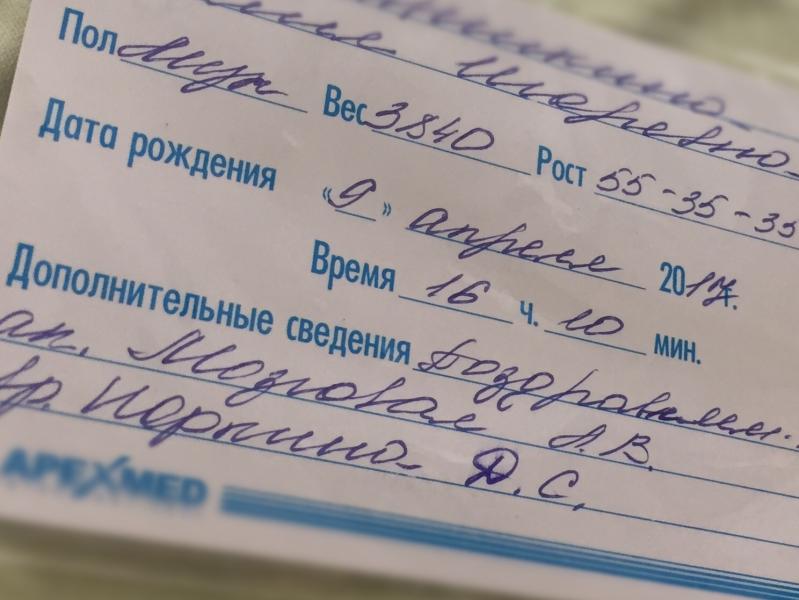 Пол муж Вес 3840 Рост 55-35-35
Дата рождения
«9» апреля 2017г.
Время 16 ч. 10 мин.
Дополнительные сведения Поздравляем.
ак. Мозговая Л.В.
вр. Норкина Д.С.
APEXMED